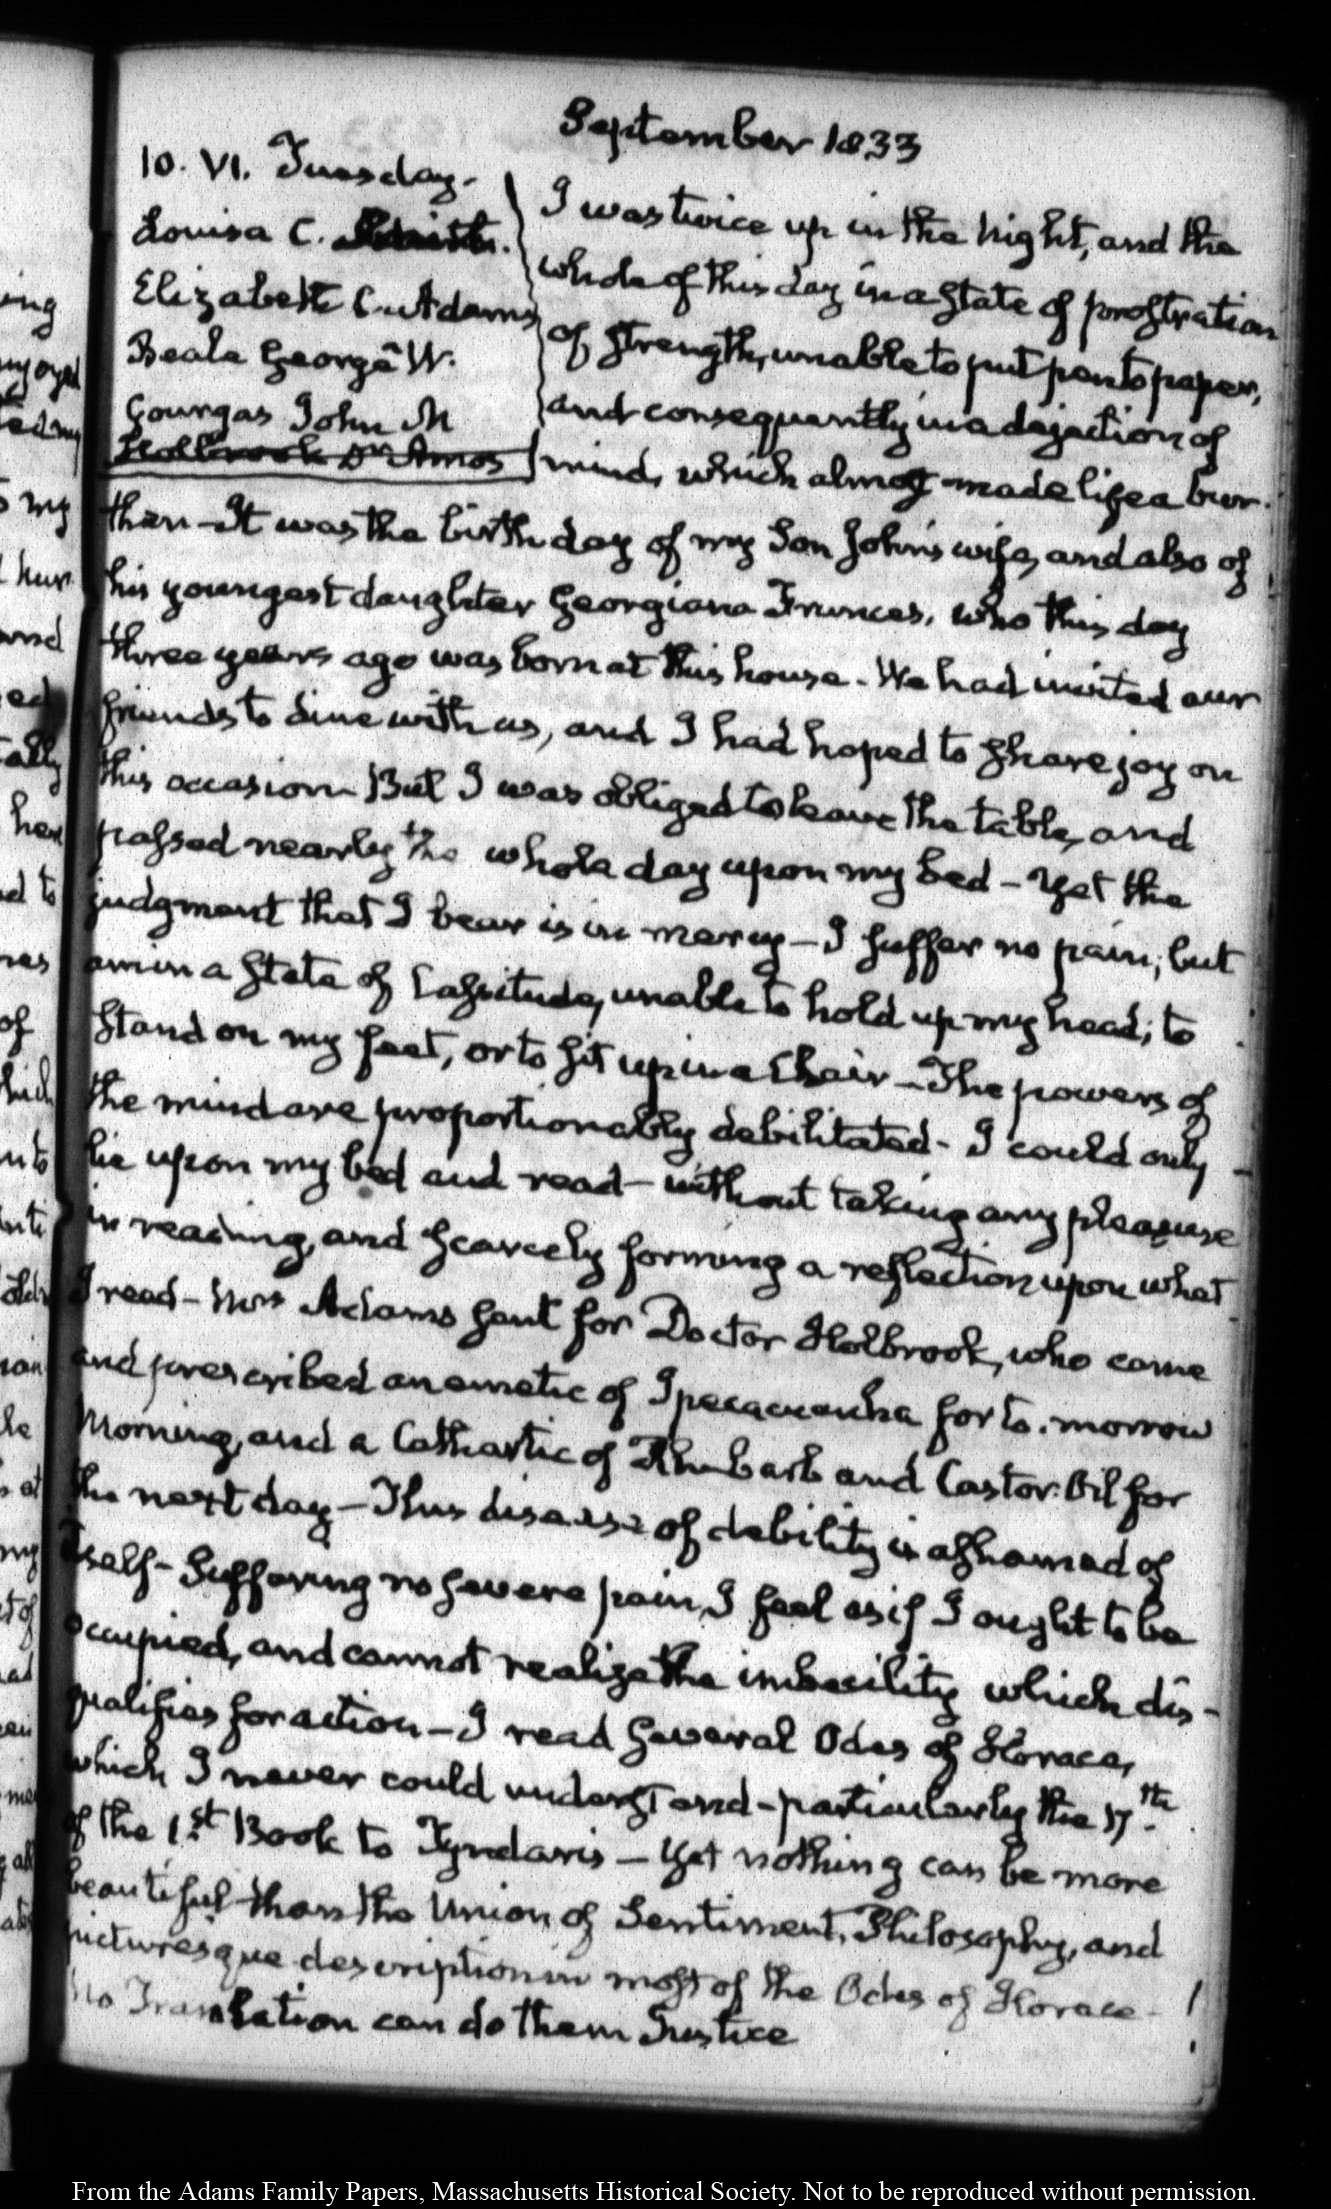 September 1833
10. VI. Tuesday.
Louisa C. Smith.
Elizabeth C. Adams
Beale George W.
Gourgas John M
Holbrook Dr Amos
I was twice up in the night, and the
whole of this day in a state of prostration
of strength, unable to put pen to paper,
and consequently in a dejection of
mind, which almost made life a bur-
then – It was the birth day of my Son John's wife, and also of
his youngest daughter Georgiana Frances, who this day
three years ago was born at this house. We had invited our
friends to dine with us, and I had hoped to share joy on
this occasion – But I was obliged to leave the table, and
passed nearly the whole day upon my bed – Yet the
judgment that I bear is in mercy – I suffer no pain; but
am in a state of Lassitude, unable to hold up my head; to
stand on my feet, or to sit up in a Chair – The powers of
the mind are proportionably debilitated – I could only
lie upon my bed and read – without taking any pleasure
in reading, and scarcely forming a reflection upon what
I read – Mrs Adams sent for Doctor Holbrook, who came
and prescribed an emetic of Ipecacuanha for to-morrow
Morning, and a Cathartic of Rhubarb and Castor-Oil for
the next day – This disease of debility is ashamed of
itself – Suffering no severe pain, I feel as if I ought to be
occupied, and cannot realize the imbecility which dis-
qualifies for action – I read several Odes of Horace,
which I never could understand – particularly the 17th.
of the 1st. Book to Tyndaris – Yet nothing can be more
beautiful than the Union of Sentiment, Philosophy, and
picturesque description in most of the Odes of Horace – !
No Translation can do them Justice
From the Adams Family Papers, Massachusetts Historical Society. Not to be reproduced without permission.